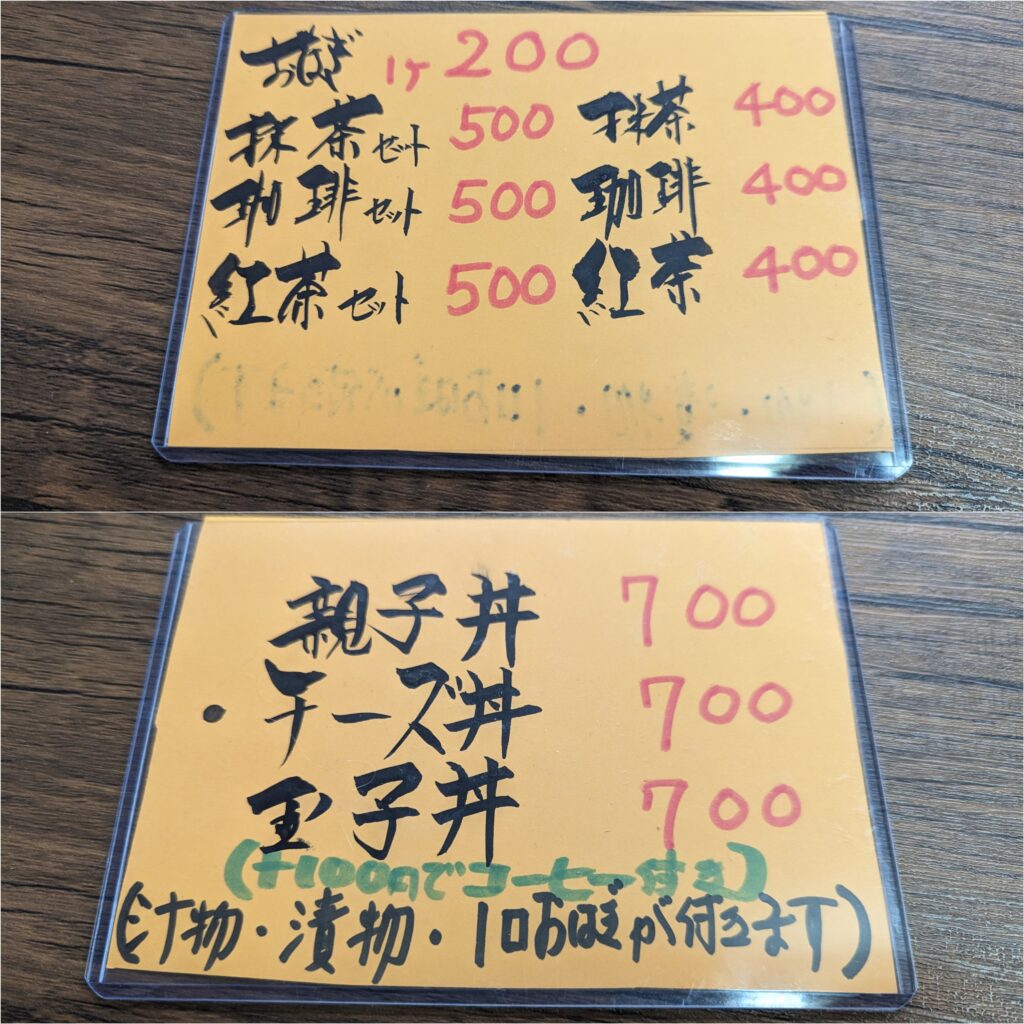 おはぎ 1ケ 200
抹茶セット 500 抹茶 400
珈琲セット 500 珈琲 400
紅茶セット 500 紅茶 400
親子丼 700
・チーズ丼 700
玉子丼 700
(+100円でコーヒー付き)
(汁物・漬物・1口おはぎが付きます)